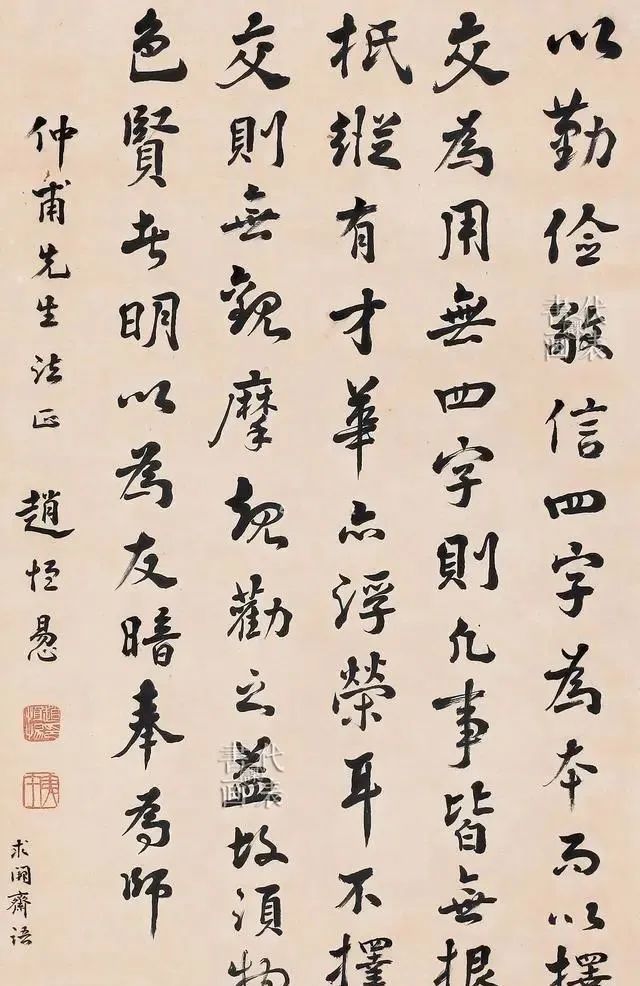 以勤儉敬信四字為本而以擇
交為用無四字則凡事皆無根
柢縱有才華亦浮榮耳不擇
交則無觀摩規勸之益故須物
色賢者明以為友暗奉為師
仲甫先生法正 趙恒惕
求闕齋語
代表
書画
代表
書画